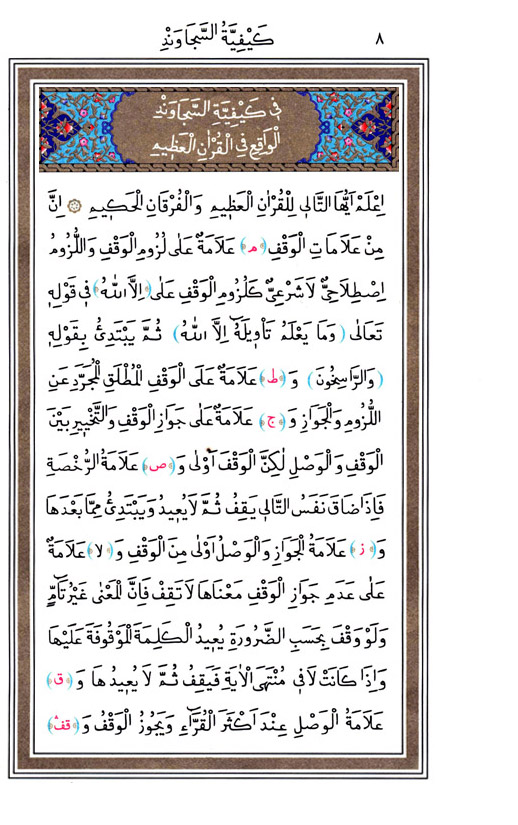 ٨ كَيْفِيَّةُ السَّجَاوَنْدِ
فِى كَيْفِيَّةِ السَّجَاوَنْدِ
الْوَاقِعِ فِى الْقُرْاٰنِ الْعَظٖيمِ
اِعْلَمْ اَيُّهَا التَّالٖى لِلْقُرْاٰنِ الْعَظٖيمِ وَالْفُرْقَانِ الْحَكٖيمِ ۞ اِنَّ
مِنْ عَلَامَاتِ الْوَقْفِ ﴿م﴾ عَلَامَةٌ عَلٰى لُزُومِ الْوَقْفِ وَاللُّزُومُ
اِصْطِلَاحِىٌّ لَا شَرْعِىٌّ كَلُزُومِ الْوَقْفِ عَلٰى ﴿اِلَّا اللّٰهُ﴾ فٖى قَوْلِهٖ
تَعَالٰى ﴿وَمَا يَعْلَمُ تَاْوٖيلَهُٓ اِلَّا اللّٰهُ﴾ ثُمَّ يَبْتَدِئُ بِقَوْلِهٖ
﴿وَالرَّاسِخُونَ﴾ وَ﴿ط﴾ عَلَامَةٌ عَلَى الْوَقْفِ الْمُطْلَقِ الْمُجَرَّدِ عَنِ
اللُّزُومِ وَالْجَوَازِ وَ﴿ج﴾ عَلَامَةٌ عَلٰى جَوَازِ الْوَقْفِ وَالتَّخْيٖيرِ بَيْنَ
الْوَقْفِ وَالْوَصْلِ لٰكِنَّ الْوَقْفَ اَوْلٰى وَ﴿ص﴾ عَلَامَةُ الرُّخْصَةِ
فَاِذَا ضَاقَ نَفَسُ التَّالٖى يَقِفُ ثُمَّ لَا يُعٖيدُ وَيَبْتَدِئُ مِمَّا بَعْدَهَا
وَ﴿ز﴾ عَلَامَةُ الْجَوَازِ وَالْوَصْلُ اَوْلٰى مِنَ الْوَقْفِ وَ﴿لا﴾ عَلَامَةٌ
عَلٰى عَدَمِ جَوَازِ الْوَقْفِ مَعْنَاهَا لَا تَقِفْ فَاِنَّ الْمَعْنٰى غَيْرُ تَامٍّ
وَلَوْ وَقَفَ بِحَسَبِ الضَّرُورَةِ يُعٖيدُ الْكَلِمَةَ الْمَوْقُوفَةَ عَلَيْهَا
وَاِذَا كَانَتْ لَا فٖى مُنْتَهَى الْاٰيَةِ فَيَقِفُ ثُمَّ لَا يُعٖيدُهَا وَ﴿ق﴾
عَلَامَةُ الْوَصْلِ عِنْدَ اَكْثَرِ الْقُرَّٓاءِ وَيَجُوزُ الْوَقْفُ وَ﴿قف﴾